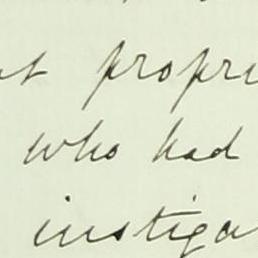 ut propri
who had
instiga